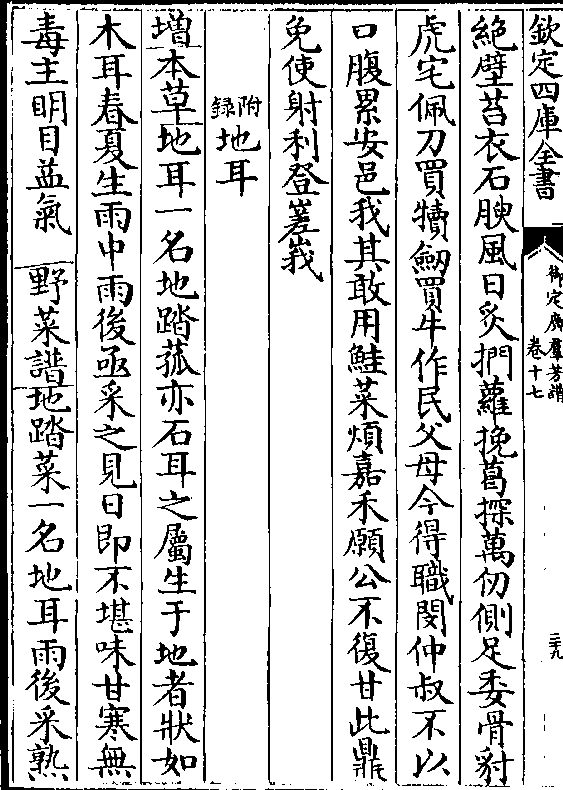 欽定四庫全書
御定廣羣芳譜
卷十七
三九
絶壁苔衣石腴風日炙捫蘿挽葛探萬仞側足委骨豺
虎宅佩刀買犢劒買牛作民父母今得職閔仲叔不以
口腹累安邑我其敢用鮭菜煩嘉禾願公不復甘此鼎
免使射利登嵳峩
附録地耳
増本草地耳一名地踏菰亦石耳之屬生于地者狀如
木耳春夏生雨中雨後亟采之見日即不堪味甘寒無
毒主明目益氣　野菜譜地踏菜一名地耳雨後采熟